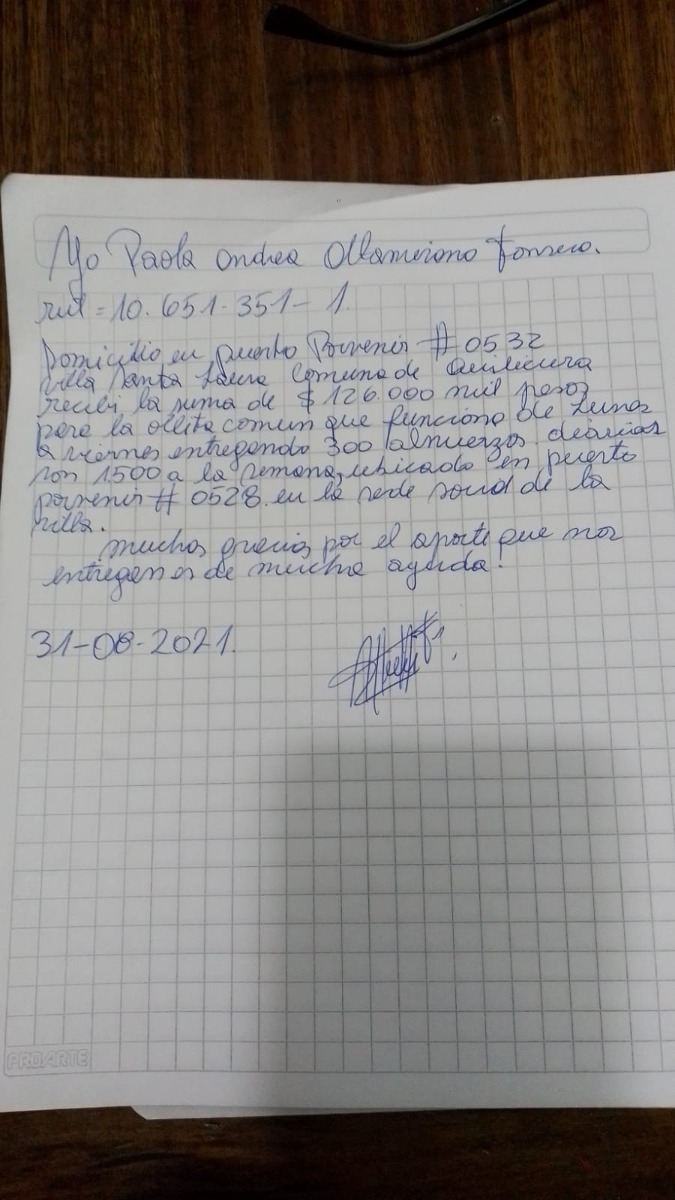 Yo Paola Andrea Altamirano Fonseca.
rut = 10.651.351-1.
Domicilio en puerto Porvenir # 0532
villa Santa Laura Comuna de Quilicura
recibi la suma de $ 126.000 mil pesos
para la ollita comun que funciona de Lunes
a viernes entregando 300 almuerzos diarios
son 1500 a la semana, ubicado en puerto
porvenir # 0528 en la sede social de la
villa.
muchas gracias por el aporte que nos
entregan es de mucha ayuda.
31-08-2021.
PROARTE